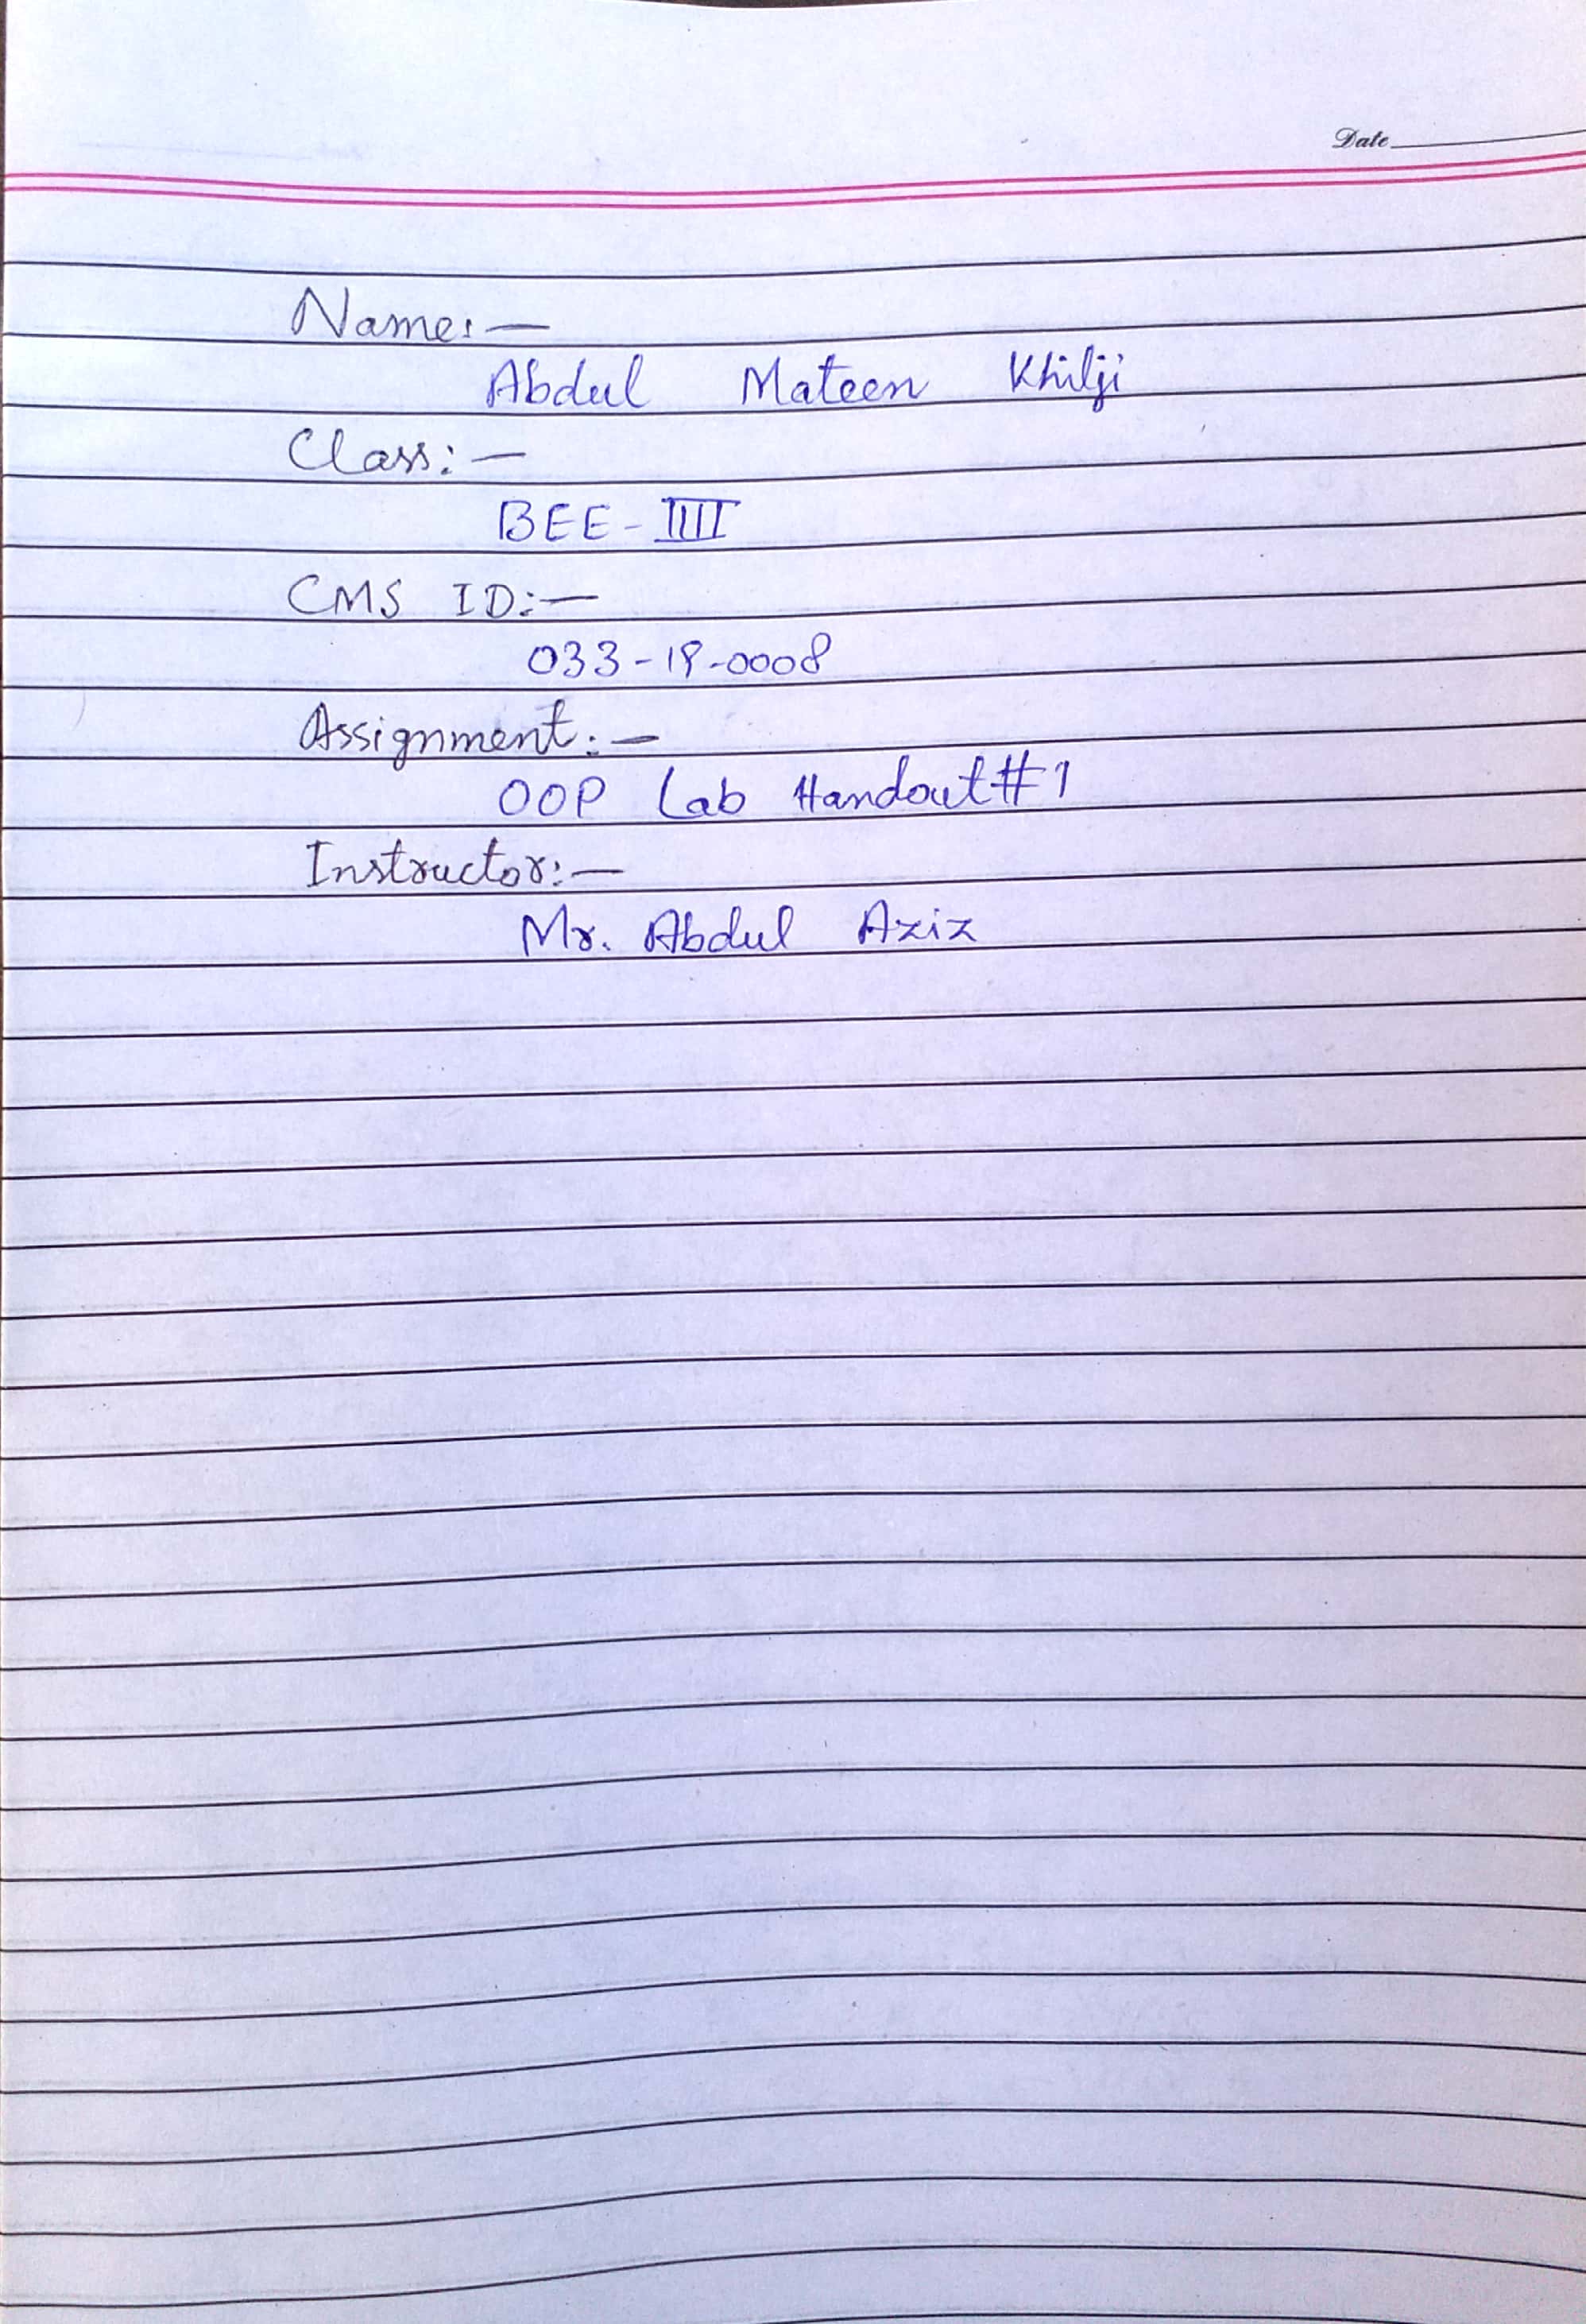 Date
Name:—
Abdul Mateen Khilji
Class:—
BEE-IIII
CMS ID:—
033-19-0008
Assignment:—
OOP Lab Handout#1
Instructor:—
Mr. Abdul Aziz